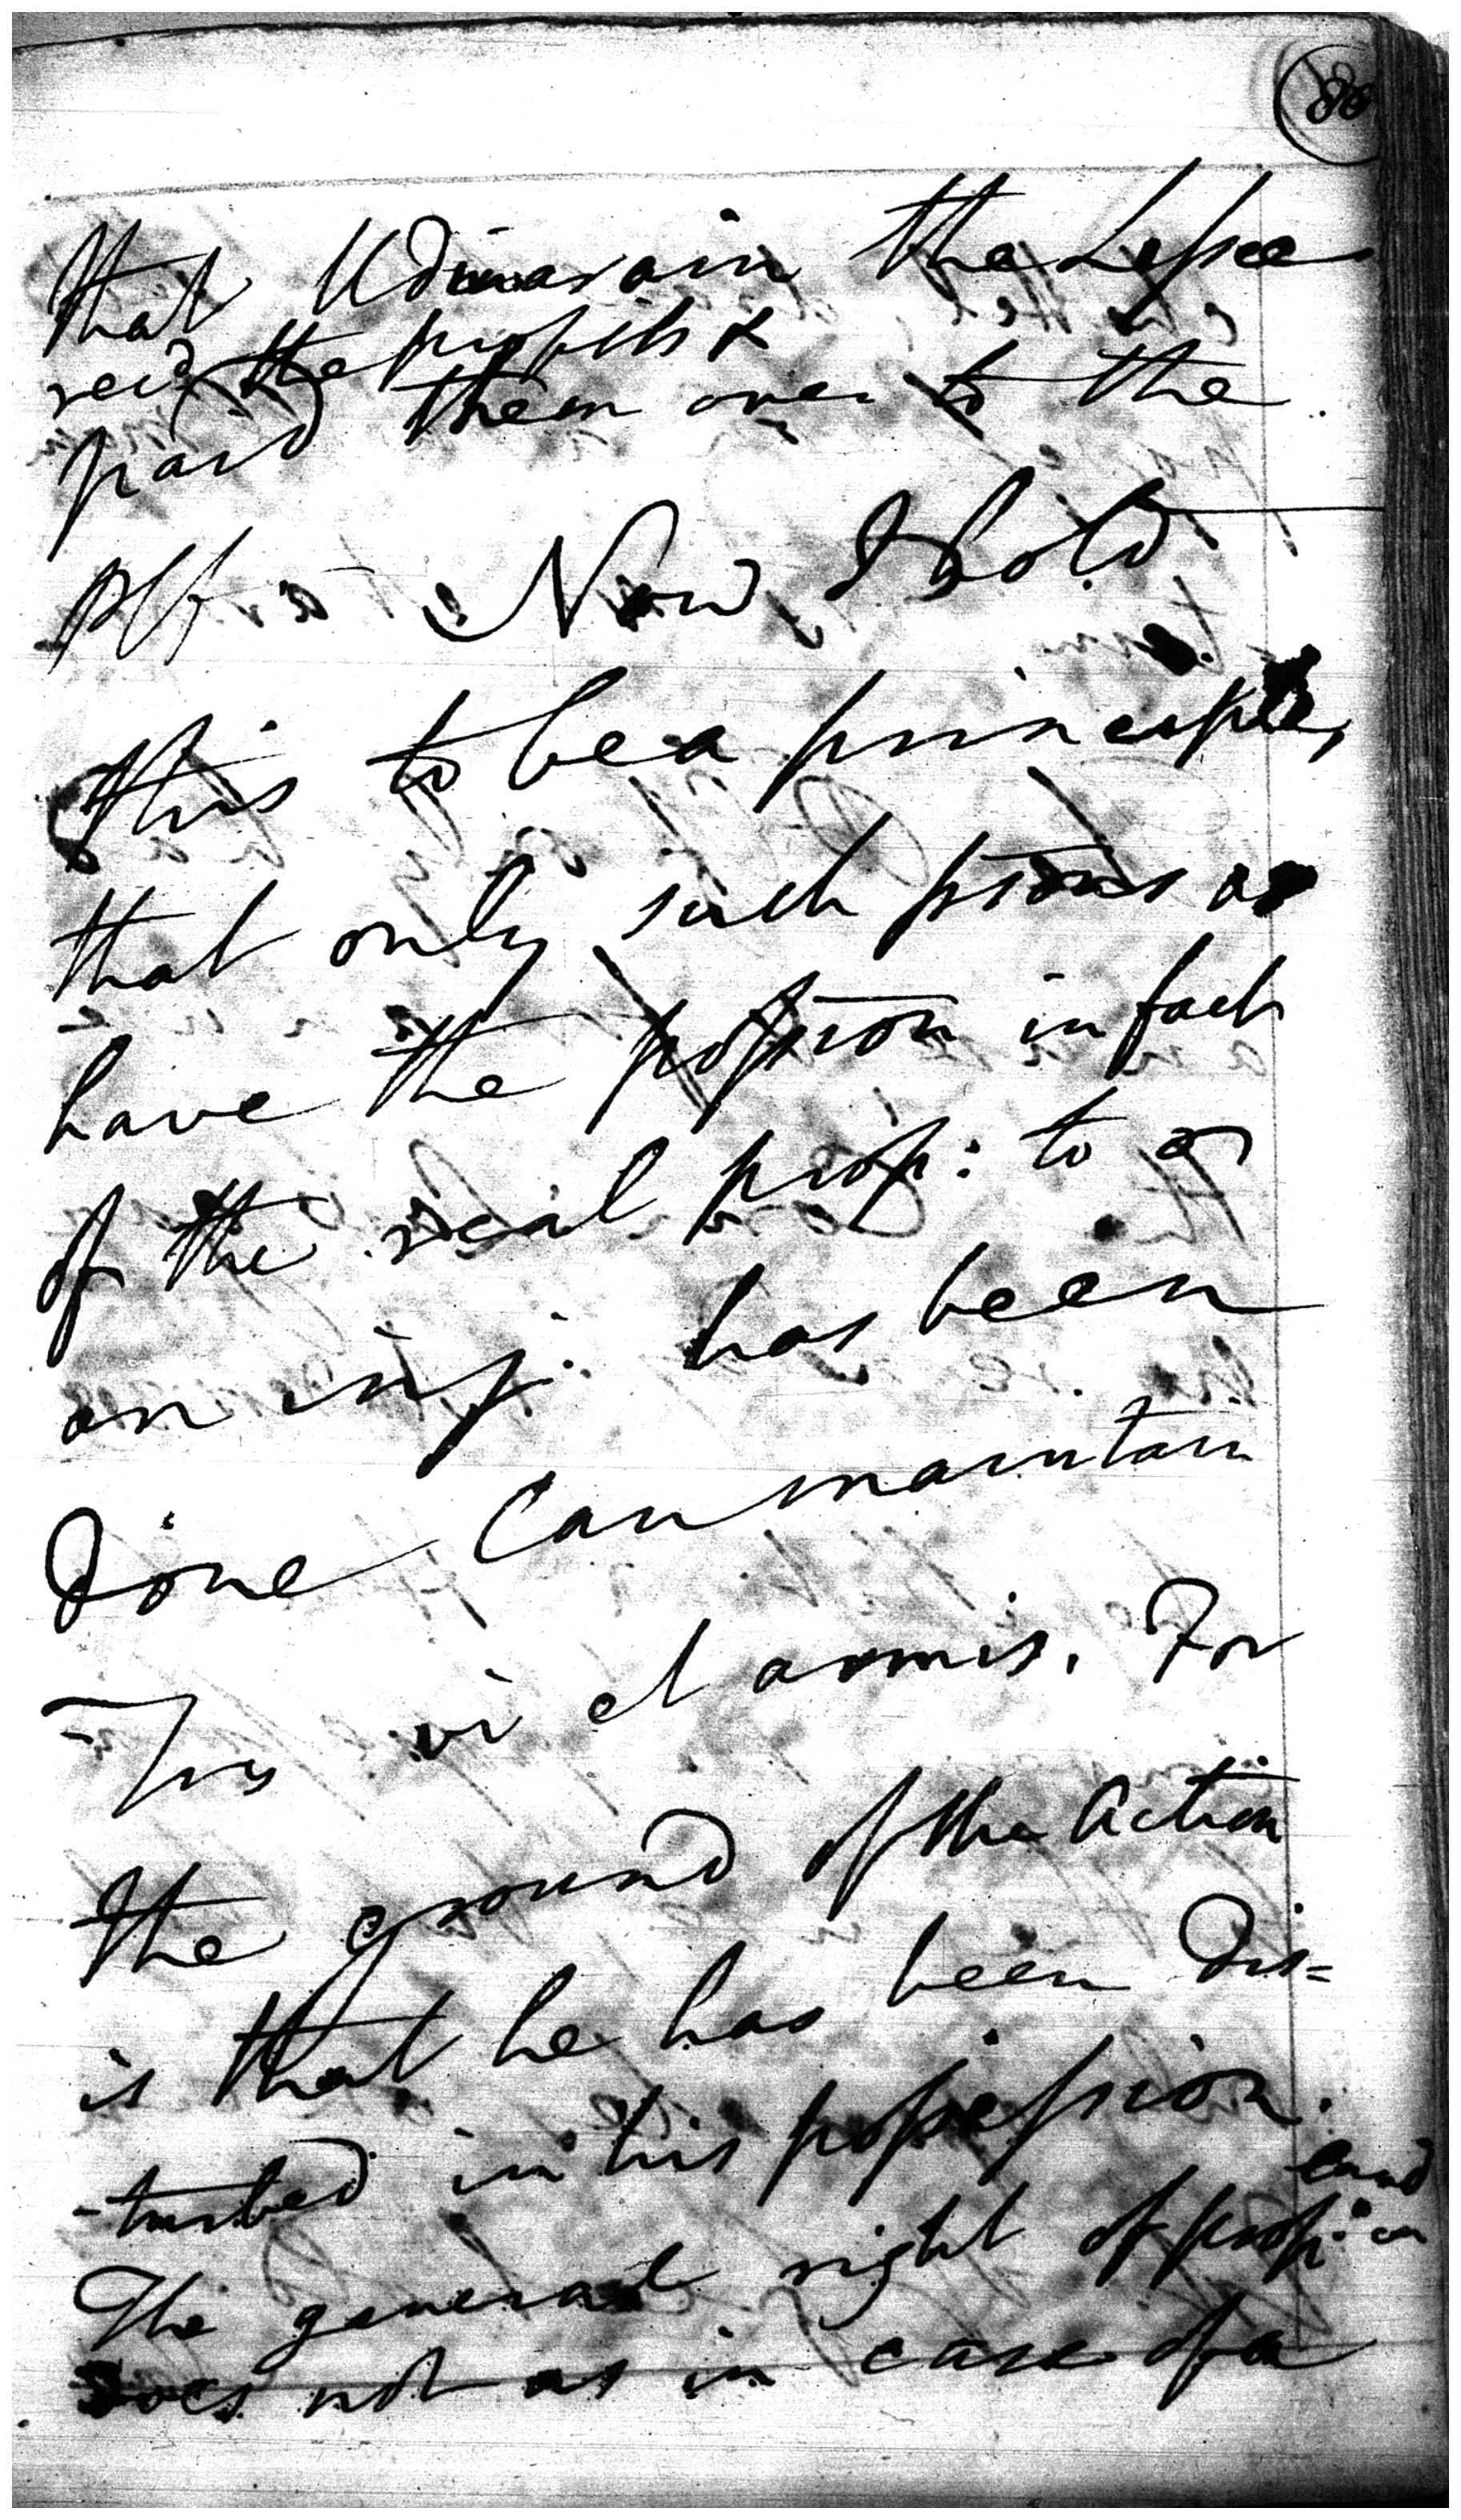 80
that Udinarain the Lessee
recd the profits &
paid them over to the
Plff - Now I hold
this to be a principle,
that only such psons as
have the possion in fact
of the real prop: to or
on inj: has been
done can maintain
Tres vi et armis. For
the ground of the action
is that he has been dis=
-turbed in his possession.
The general right of prop: in land
does not as in case of a